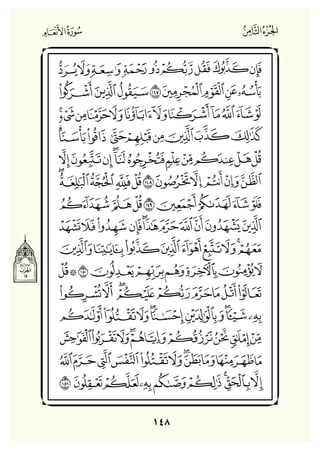 سُورَةُ الأَنْعَامِ الجُزْءُ الثَّامِنُ
فَإِن كَذَّبُوكَ فَقُل رَّبُّكُمْ ذُو رَحْمَةٍ وَاسِعَةٍ وَلَا يُرَدُّ
بَأْسُهُۥ عَنِ الْقَوْمِ الْمُجْرِمِينَ ١٤٧ سَيَقُولُ الَّذِينَ أَشْرَكُوا
لَوْ شَاءَ اللَّهُ مَا أَشْرَكْنَا وَلَا ءَابَاؤُنَا وَلَا حَرَّمْنَا مِن شَيْءٍ
كَذَٰلِكَ كَذَّبَ الَّذِينَ مِن قَبْلِهِمْ حَتَّىٰ ذَاقُوا بَأْسَنَا
قُلْ هَلْ عِندَكُم مِّنْ عِلْمٍ فَتُخْرِجُوهُ لَنَا إِن تَتَّبِعُونَ إِلَّا
الظَّنَّ وَإِنْ أَنتُمْ إِلَّا تَخْرُصُونَ ١٤٨ قُلْ فَلِلَّهِ الْحُجَّةُ الْبَٰلِغَةُ
فَلَوْ شَاءَ لَهَدَىٰكُمْ أَجْمَعِينَ ١٤٩ قُلْ هَلُمَّ شُهَدَاءَكُمُ
الَّذِينَ يَشْهَدُونَ أَنَّ اللَّهَ حَرَّمَ هَٰذَا فَإِن شَهِدُوا فَلَا تَشْهَدْ
مَعَهُمْ وَلَا تَتَّبِعْ أَهْوَاءَ الَّذِينَ كَذَّبُوا بِـَٔايَٰتِنَا وَالَّذِينَ
لَا يُؤْمِنُونَ بِالْءَاخِرَةِ وَهُم بِرَبِّهِمْ يَعْدِلُونَ ١٥٠ ۞ قُلْ
تَعَالَوْا أَتْلُ مَا حَرَّمَ رَبُّكُمْ عَلَيْكُمْ أَلَّا تُشْرِكُوا
بِهِۦ شَيْـًٔا وَبِالْوَٰلِدَيْنِ إِحْسَٰنًا وَلَا تَقْتُلُوا أَوْلَٰدَكُم
مِّنْ إِمْلَٰقٍ نَّحْنُ نَرْزُقُكُمْ وَإِيَّاهُمْ وَلَا تَقْرَبُوا الْفَوَٰحِشَ
مَا ظَهَرَ مِنْهَا وَمَا بَطَنَ وَلَا تَقْتُلُوا النَّفْسَ الَّتِي حَرَّمَ اللَّهُ
إِلَّا بِالْحَقِّ ذَٰلِكُمْ وَصَّىٰكُم بِهِۦ لَعَلَّكُمْ تَعْقِلُونَ ١٥١
١٤٨